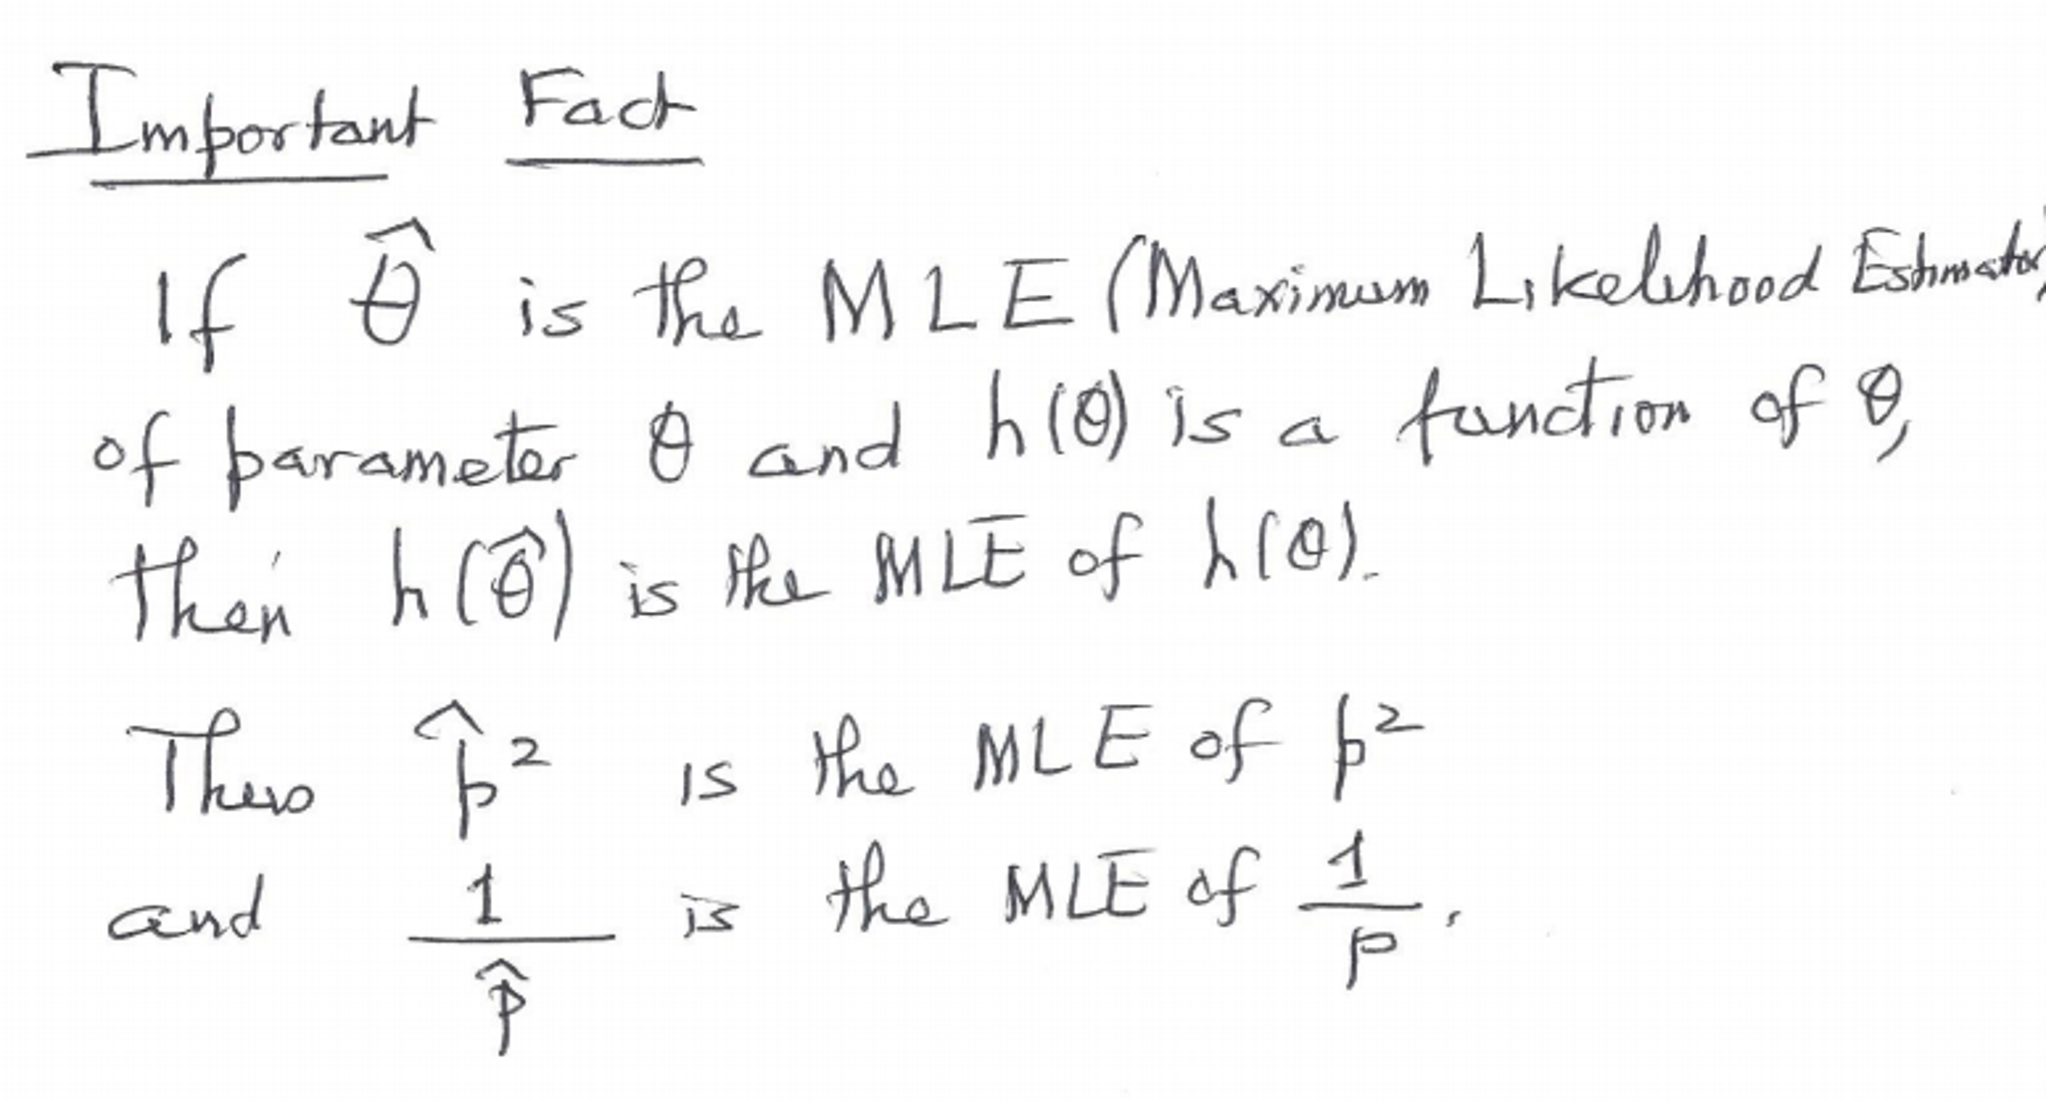 Important Fact
If θ̂ is the MLE (Maximum Likelihood Estimator)
of parameter θ and h(θ) is a function of θ,
then h(θ̂) is the MLE of h(θ).
Thus p̂² is the MLE of p²
and 1/p̂ is the MLE of 1/p.